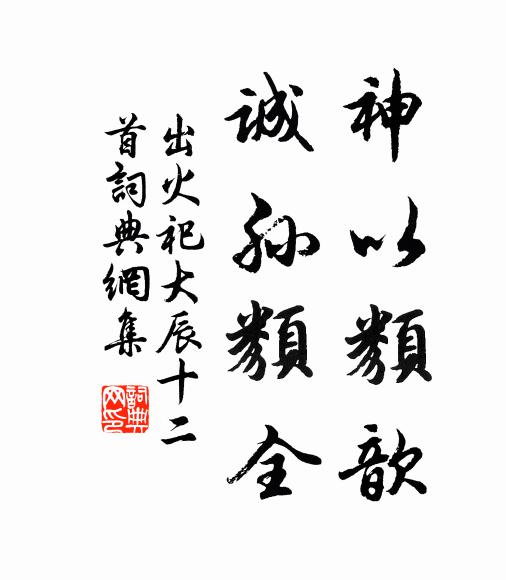 神以類歆
誠孙類全
出火祀大辰十二
首詞典網集
詞典
网印